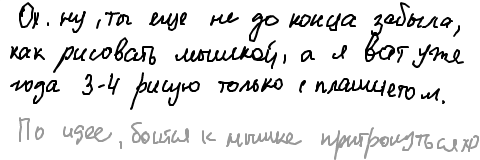 Ох. ну, ты еще не до конца забыла,
как рисовать мышкой, а я ват уже
года 3-4 рисую только с планшетом.
По идее, боится к мышке притронуться хр